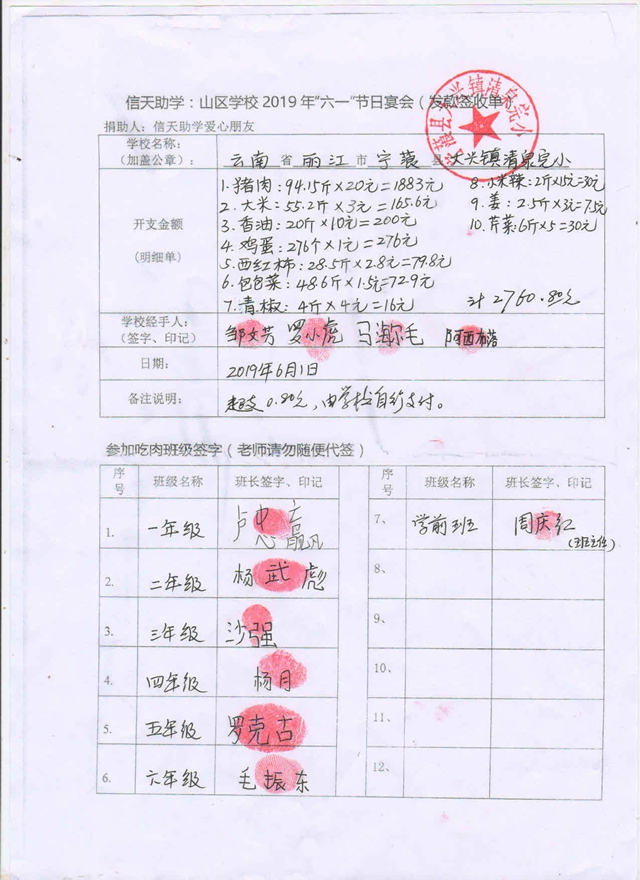 信天助学：山区学校2019年“六一”节日宴会（发款签收单）
宁蒗县大兴镇清泉完小
捐助人：信天助学爱心朋友
学校名称：
（加盖公章）： 云南省丽江市宁蒗县大兴镇清泉完小
开支金额
（明细单）
1.猪肉：94.15斤×20元=1883元
2.大米：55.2斤×3元=165.6元
3.香油：20斤×10元=200元
4.鸡蛋：276个×1元=276元
5.西红柿：28.5斤×2.8元=79.8元
6.包包菜：48.6斤×1.5元=72.9元
7.青椒：4斤×4元=16元
8.小米辣：2斤×15元=30元
9.姜：2.5斤×3元=7.5元
10.芹菜：6斤×5=30元
计2760.80元
学校经手人：
（签字、印记） 邹文芳 罗小虎 马海尔毛 阿西布落
日期： 2019年6月1日
备注说明： 超支0.80元，由学校自行支付。
参加吃肉班级签字（老师请勿随便代签）
序号 班级名称 班长签字、印记 序号 班级名称 班长签字、印记
1. 一年级 卢忠赢 7、 学前班 周庆红（班主任）
2. 二年级 杨武彪 8、
3. 三年级 沙强 9、
4. 四年级 杨月 10、
5. 五年级 罗克古 11、
6. 六年级 毛振东 12、